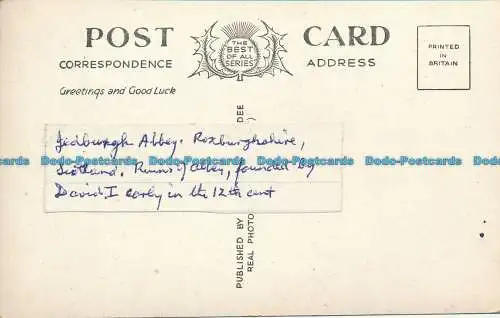 POST CARD
THE BEST OF ALL SERIES
PRINTED IN BRITAIN
CORRESPONDENCE ADDRESS
Greetings and Good Luck
Jedburgh Abbey. Roxburghshire,
Scotland. Ruins of Abbey, founded by
David I early in the 12th cent
Dodo-Postcards Dodo-Postcards Dodo-Postcards Dodo-Postcards
PUBLISHED BY DEE
REAL PHOTO